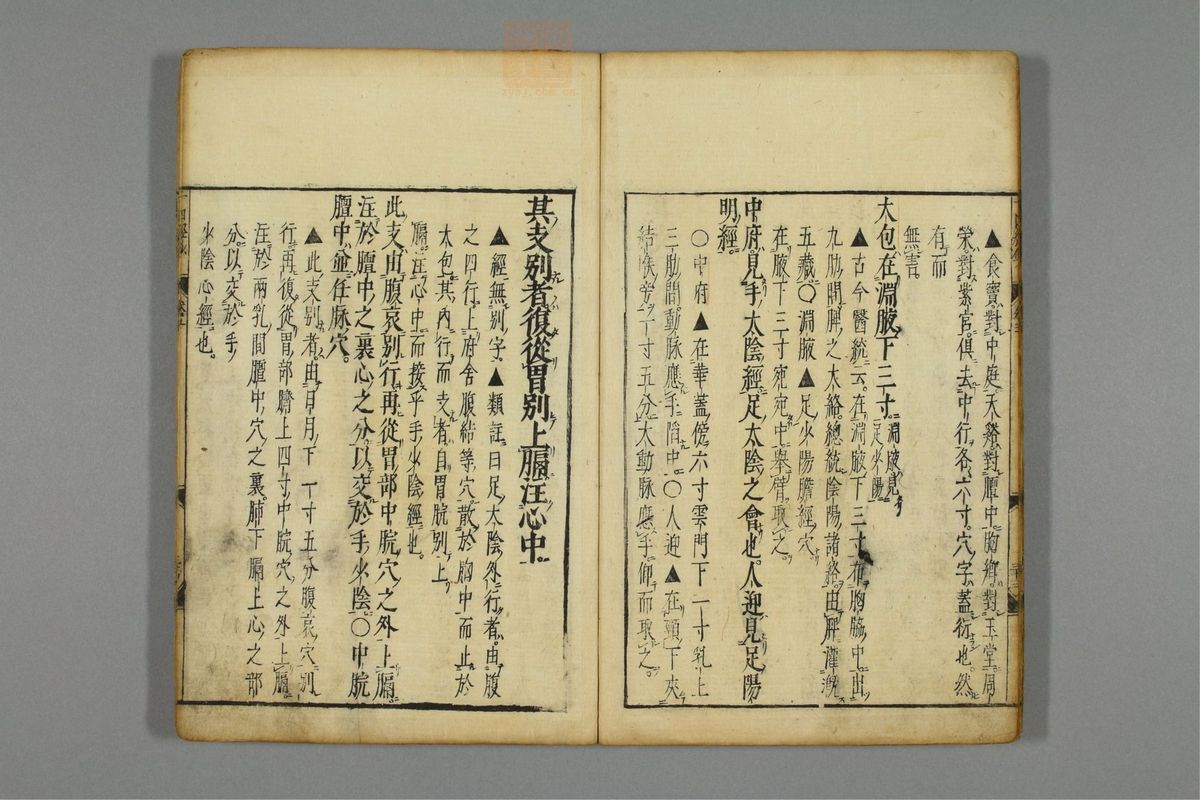 ▲食竇對中庭天谿對膻中胸鄉對玉堂周
榮對紫宮俱去中行各六寸穴字蓋衍也然
有而
無害
大包在淵腋下三寸淵腋見足少陽
▲古今醫統云在淵腋下三寸布胸脇中出
九肋間脾之大絡總統陰陽諸絡由脾灌溉
五藏○淵腋▲足少陽膽經穴
在腋下三寸宛宛中舉臂取之
中府見手太陰經足太陰之會也人迎見足陽
明經
○中府▲在華蓋傍六寸雲門下一寸乳上
三肋間動脉應手陷中○人迎▲在頸下夾
結喉旁一寸五分大動脉應手仰而取之
其支別者復從胃別上膈注心中
▲經無別字▲類註曰足太陰外行者由腹
之四行上府舍腹結等穴散於胸中而止於
大包其內行而支者自胃脘別上
膈注心中而接乎手少陰經也
此支由腹哀別行再從胃部中脘穴之外上膈
注於膻中之裏心之分以交於手少陰○中脘
膻中並任脉穴
▲此支別者由日月下一寸五分腹哀穴別
行再復從胃部臍上四寸中脘穴之外上膈
注於兩乳間膻中穴之裏肺下膈上心之部
分以交於手
少陰心經也